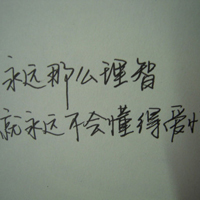 永远那么理智
就永远不会懂得爱情